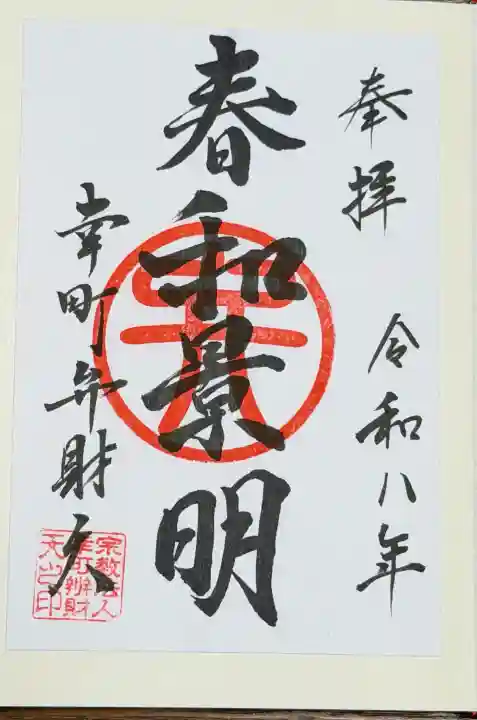 奉拝
令和八年
春和景明
幸町弁財天
宗教法人
幸町辨財
天山印